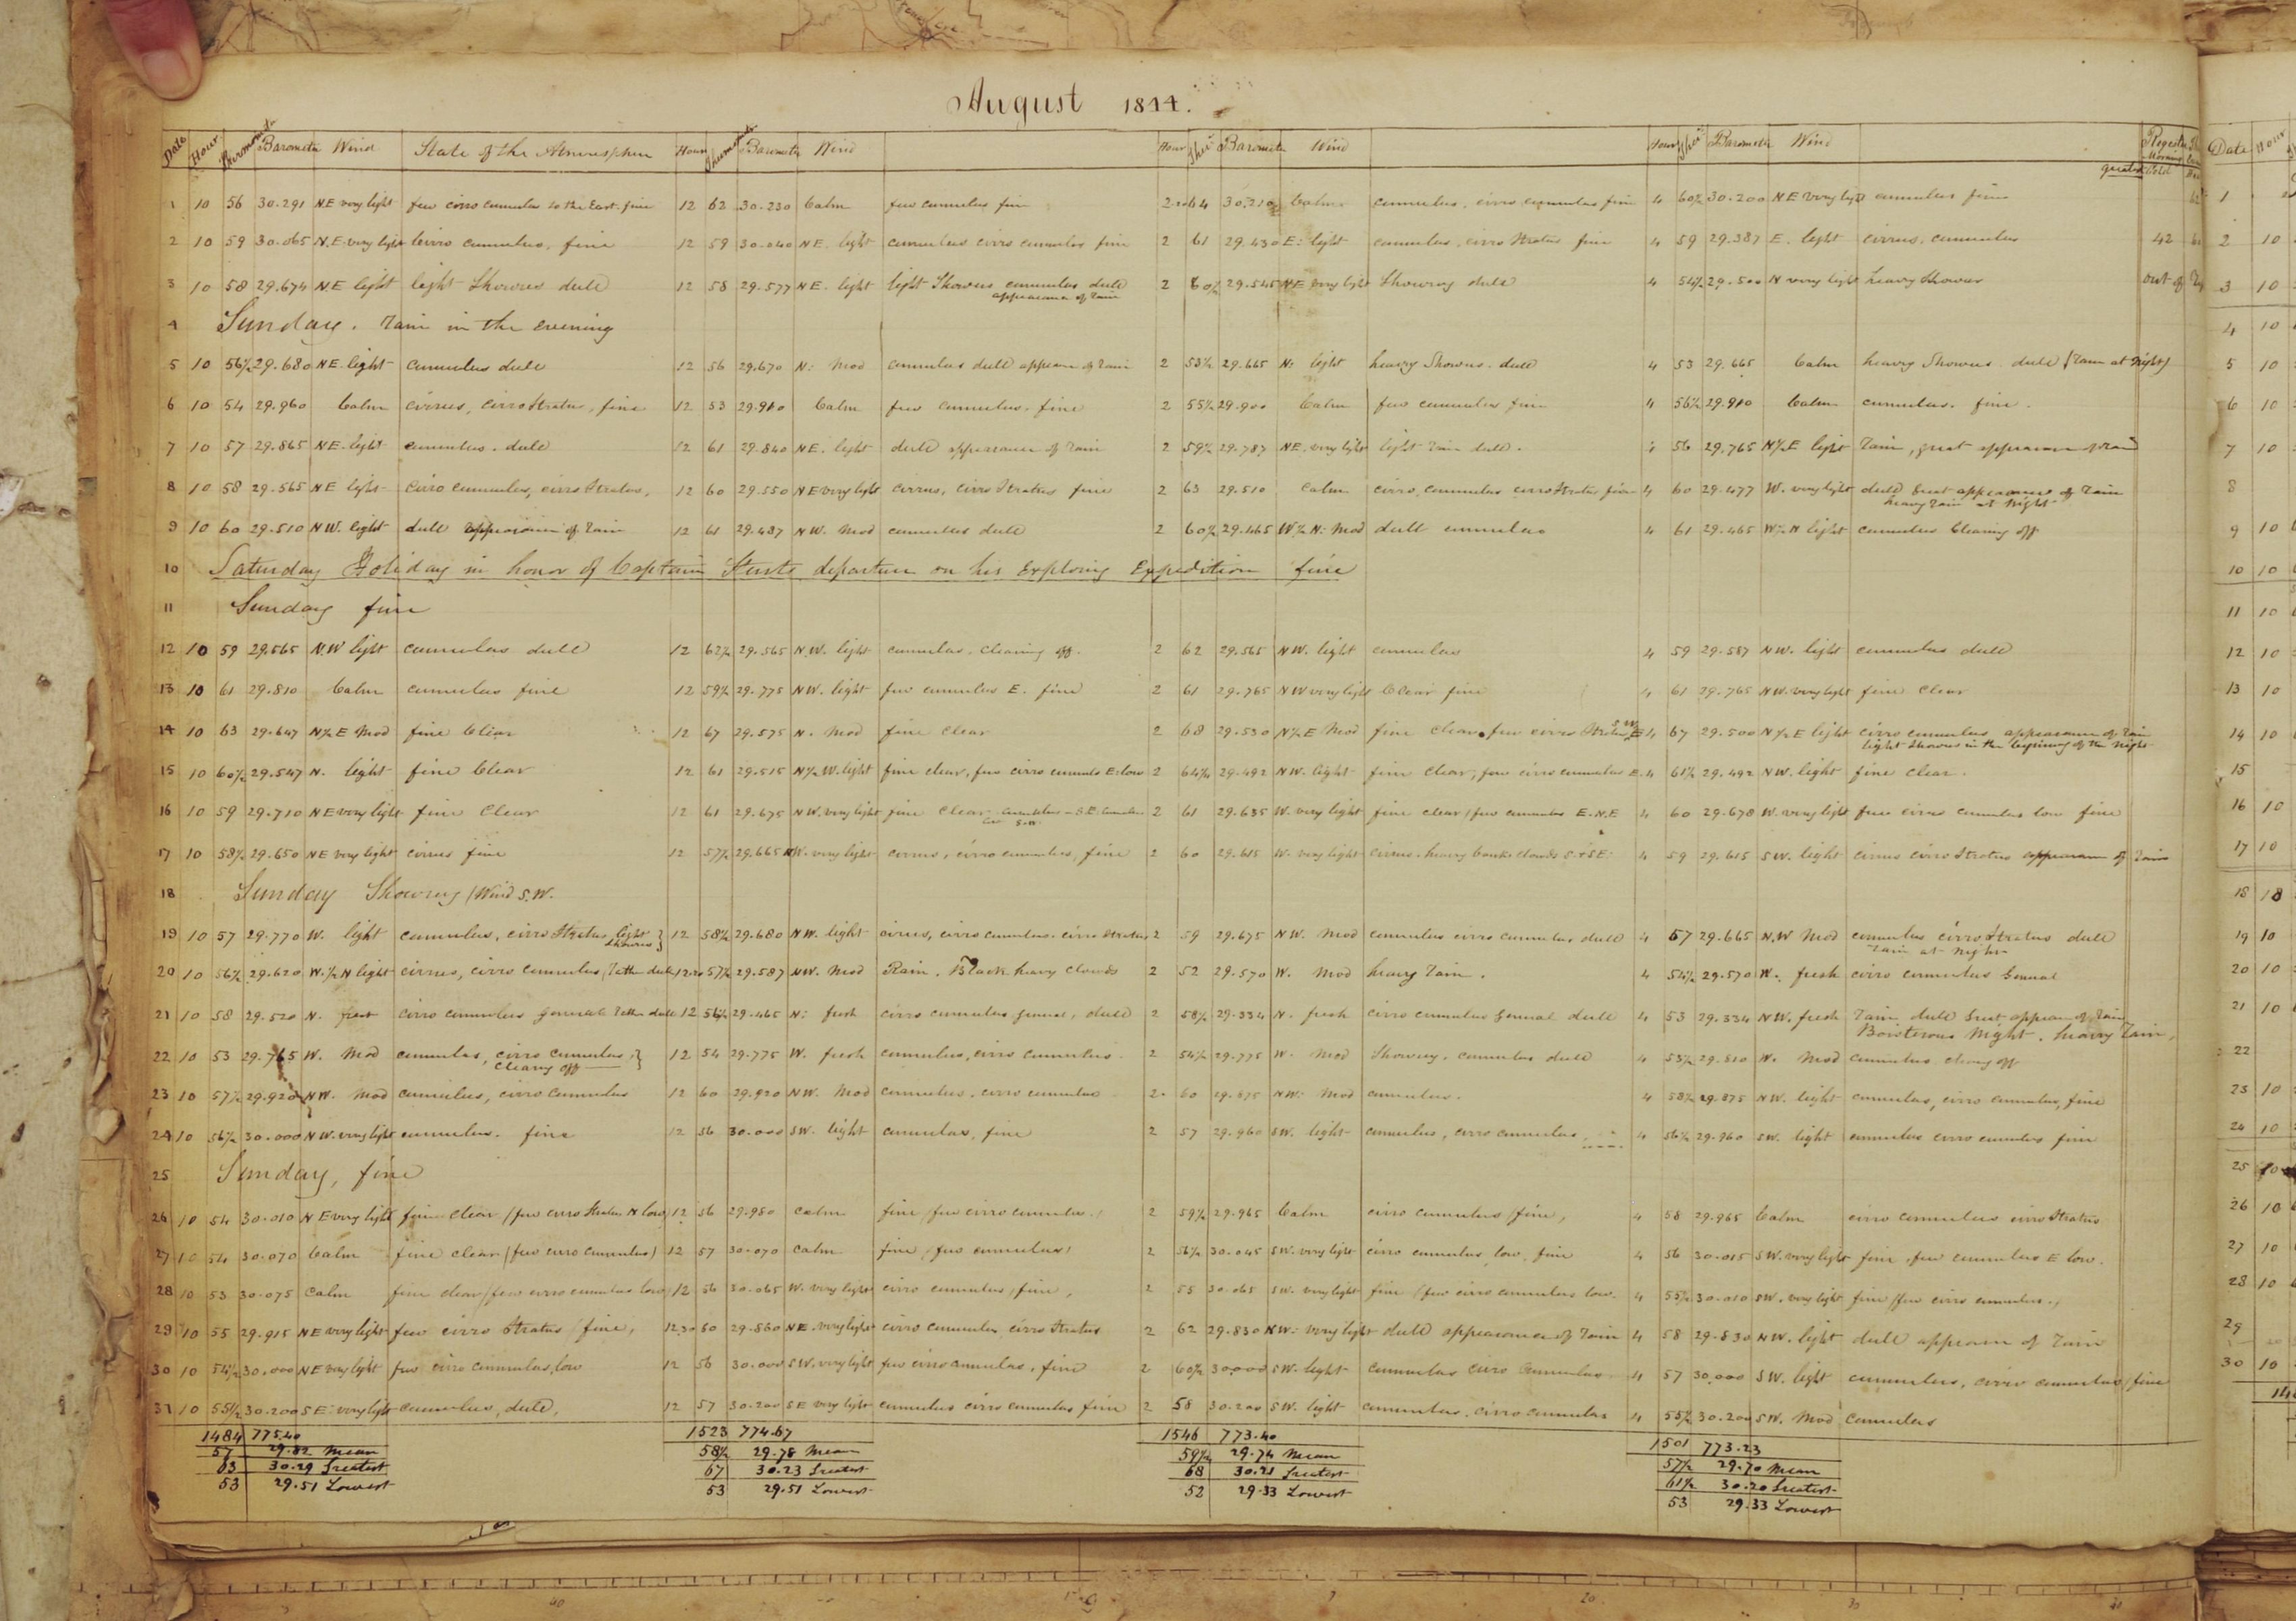 August 1844.
Date Hour Thermomtr Barometer Wind State of the Atmosphere Hour Thermomtr Barometer Wind Hour Ther Barometer Wind Hour Ther Barometer Wind Register
Morning
greatest Cold
1 10 56 30.291 NE very light few cirro cumulus to the East. fine 12 62 30.230 Calm few cumulus fine 64 30.210 Calm cumulus, cirro cumulus fine 4 60½ 30.200 NE very light cumulus fine
2 10 59 30.065 N.E. very light cirro cumulus, fine 12 59 30.040 NE. light cumulus cirro cumulus fine 2 61 29.430 E: light cumulus, cirro stratus fine 4 59 29.387 E. light cirrus, cumulus 42
3 10 58 29.674 N.E light light Showers dull 12 58 29.577 NE. light light Showers cumulus dull 2 60½ 29.545 NE very light Showery dull 4 54½ 29.500 N very light heavy Shower out of
appearance of rain
4 Sunday. rain in the evening
5 10 56½ 29.680 NE. light cumulus dull 12 56 29.670 N: Mod cumulus dull appearn of rain 2 53½ 29.665 N: light heavy Showers. dull 4 53 29.665 Calm heavy Showers dull (rain at night)
6 10 54 29.960 Calm cirrus, cirro stratus, fine 12 53 29.910 Calm few cumulus, fine 2 55½ 29.900 Calm few cumulus fine 4 56½ 29.910 Calm cumulus. fine.
7 10 57 29.865 NE. light cumulus. dull 12 61 29.840 NE. light dull appearance of rain 2 59½ 29.787 NE. very light light rain dull. 4 56 29.765 N½E light rain, great appearance of rain
8 10 58 29.565 NE light cirro cumulus, cirro stratus, 12 60 29.550 NE very light cirrus, cirro stratus fine 2 63 29.510 Calm cirro, cumulus cirro stratus fine 4 60 29.477 W. very light dull Great appearance of rain
heavy rain at night
9 10 60 29.510 NW. light dull appearance of rain 12 61 29.487 NW. Mod cumulus dull 2 60½ 29.465 W½N: Mod dull cumulus 4 61 29.465 W½N light cumulus Clearing off
10 Saturday Holiday in honor of Captain Sturts departure on his Exploring Expedition fine
11 Sunday fine
12 10 59 29.565 N.W light cumulus dull 12 62½ 29.565 N.W. light cumulus. clearing off. 2 62 29.565 NW. light cumulus 4 59 29.587 NW. light cumulus dull
13 10 61 29.810 Calm cumulus fine 12 59½ 29.775 NW. light few cumulus E. fine 2 61 29.765 NW very light Clear fine 4 61 29.765 NW. very light fine Clear
14 10 63 29.647 N½E Mod fine Clear 12 67 29.575 N. Mod fine Clear 2 68 29.530 N½E Mod fine Clear few cirro stratus 4 67 29.500 N½E light cirro cumulus appearance of rain
light showers in the beginning of the night
15 10 60½ 29.547 N. light fine Clear 12 61 29.515 N½W. light fine clear, few cirro cumuls E: low 2 64¼ 29.492 NW. light fine Clear, few cirro cumulus E. 4 61½ 29.492 NW. light fine Clear.
16 10 59 29.710 NE very light fine Clear 12 61 29.675 NW. very light fine Clear cumulus S.E. 2 61 29.635 W. very light fine clear / few cumulus E. N.E 4 60 29.670 W. very light few cirrus cumulus low fine
17 10 58½ 29.650 NE very light cirrus fine 12 57½ 29.665 W. very light cirrus, cirro cumulus, fine 2 60 29.615 W. very light cirrus. heavy bank clouds S.&SE: 4 59 29.615 SW. light cirrus cirro stratus appearance of rain
18 Sunday Showery / Wind S.W.
19 10 57 29.770 W. light cumulus, cirro stratus light showers } 12 58½ 29.680 NW. light cirrus, cirro cumulus. cirro stratus 2 59 29.675 NW. Mod cumulus cirro cumulus dull 4 57 29.665 N.W Mod cumulus cirro stratus dull
rain at night
20 10 56½ 29.620 W.½N light cirrus, cirro cumulus / rather dull 57½ 29.587 NW. Mod Rain. Black heavy clouds 2 52 29.570 W. Mod heavy rain. 4 54½ 29.570 W. fresh cirro cumulus General
21 10 58 29.520 N. fresh cirro cumulus general rather dull 12 56½ 29.465 N: fresh cirro cumulus general, dull 2 58½ 29.334 N. fresh cirro cumulus General dull 4 53 29.334 NW. fresh rain dull Great appearn of rain
Boisterous Night. heavy rain,
22 10 53 29.765 W. Mod cumulus, cirro cumulus, } 12 54 29.775 W. fresh cumulus, cirro cumulus. 2 54½ 29.775 W. Mod Showery. cumulus dull 4 53½ 29.810 W. Mod cumulus clearg off
clearg off
23 10 57½ 29.920 NW. Mod cumulus, cirro cumulus 12 60 29.920 NW. Mod cumulus. cirro cumulus 2. 60 29.875 NW: Mod cumulus. 4 58½ 29.875 NW. light cumulus, cirro cumulus, fine
24 10 56½ 30.000 NW. very light cumulus. fine 12 56 30.000 SW. light cumulus, fine 2 57 29.960 SW. light cumulus, cirro cumulus 4 56½ 29.960 SW. light cumulus cirro cumulus fine
25 Sunday, fine
26 10 54 30.010 NE very light fine clear / few cirro stratus N low 12 56 29.980 Calm fine / few cirro cumulus./ 2 59½ 29.965 Calm cirro cumulus / fine, 4 58 29.965 Calm cirro cumulus cirro stratus
27 10 54 30.070 Calm fine clear (few cirro cumulus) 12 57 30.070 Calm fine / few cumulus / 2 56½ 30.045 SW. very light cirro cumulus low. fine 4 56 30.015 SW. very light fine. few cumulus E low.
28 10 53 30.075 Calm fine clear / few cirro cumulus low / 12 56 30.065 W. very light cirro cumulus / fine, 2 55 30.065 SW. very light fine / few cirro cumulus low. 4 55½ 30.010 SW. very light fine / few cirro cumulus./
29 10 55 29.915 NE very light few cirro stratus / fine, 12.30 60 29.860 NE. very light cirro cumulus cirro stratus 2 62 29.830 NW: very light dull appearance of rain 4 58 29.830 NW. light dull appearn of rain
30 10 54½ 30.000 NE very light few cirro cumulus, low 12 56 30.000 SW. very light few cirro cumulus, fine 2 60½ 30.000 SW. light cumulus cirro cumulus 4 57 30.000 SW. light cumulus, cirro cumulus / fine
31 10 55½ 30.200 SE: very light cumulus, dull, 12 57 30.200 SE very light cumulus cirro cumulus fine 2 58 30.200 SW. light cumulus. cirro cumulus 4 55½ 30.200 SW. Mod cumulus
1484 775.40 1523 774.67 1546 773.40 1501 773.23
57 29.82 Mean 58½ 29.78 Mean 59½ 29.74 Mean 57½ 29.70 Mean
63 30.29 Greatest 67 30.23 Greatest 68 30.21 Greatest 61½ 30.20 Greatest
53 29.51 Lowest 53 29.51 Lowest 52 29.33 Lowest 53 29.33 Lowest
Date Hour
1
2 10
3 10
4 10
5 10
6 10
7 10
8
9 10
10 10
11 10
12 10
13 10
14 10
15
16 10
17 10
18 10
19 10
20 10
21 10
22
23 10
24 10
25 10
26 10
27 10
28 10
29
30 10